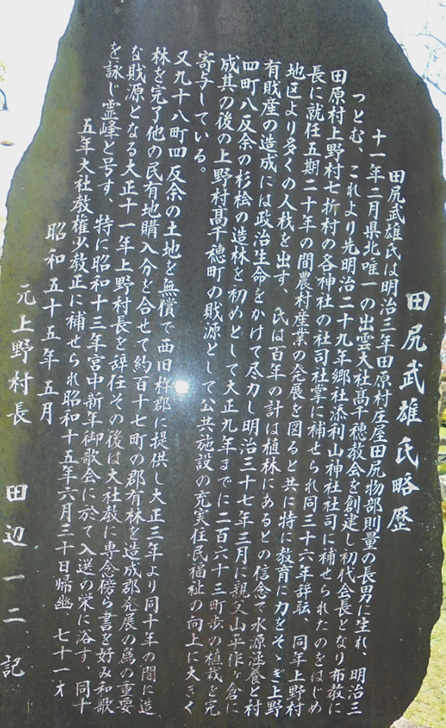 田尻武雄氏略歴
田尻武雄氏は明治三年田原村庄屋田尻物部則量の長男に生れ、明治三
十一年二月県北唯一の出雲大社高千穂教会を創建し初代会長となり布教に
つとむ、これより先明治二十九年郷社添利山神社社司に補せられたのをはじめ
田原村上野村七折村の各神社の社司社掌に補せられ同三十六年辞職、同年上野村
長に就任五期二十年の間農村産業の発展を図ると共に特に教育に力をそゝぎ上野
地区より多くの人材を出す、氏は百年の計は植林にあるとの信念で水源涵養と村
有財産の造成には政治生命をかけて尽力し明治三十七年三月に親父山平作ヶ倉に
四町八反余の杉桧の造林を初めとして大正九年までに二百六十三町歩の植栽を完
成其の後の上野村高千穂町の財源として公共施設の充実住民福祉の向上に大きく
寄与している。
又九十八町四反余の土地を無償で西臼杵郡に提供し大正三年より同十年の間に造
林を完了他の民有地購入分を合せて約百十七町の郡有林を造成郡発展の為の重要
な財源となる大正十一年上野村長を辞任その後は大社教に専念傍ら書を好み和歌
を詠じ霊峰と号す、特に昭和十三年宮中新年御歌会に於て入選の栄に浴す、同十
五年大社教権少教正に補せられ昭和十五年六月三十日帰幽 七十一才
昭和五十五年五月
元上野村長 田辺一二 記